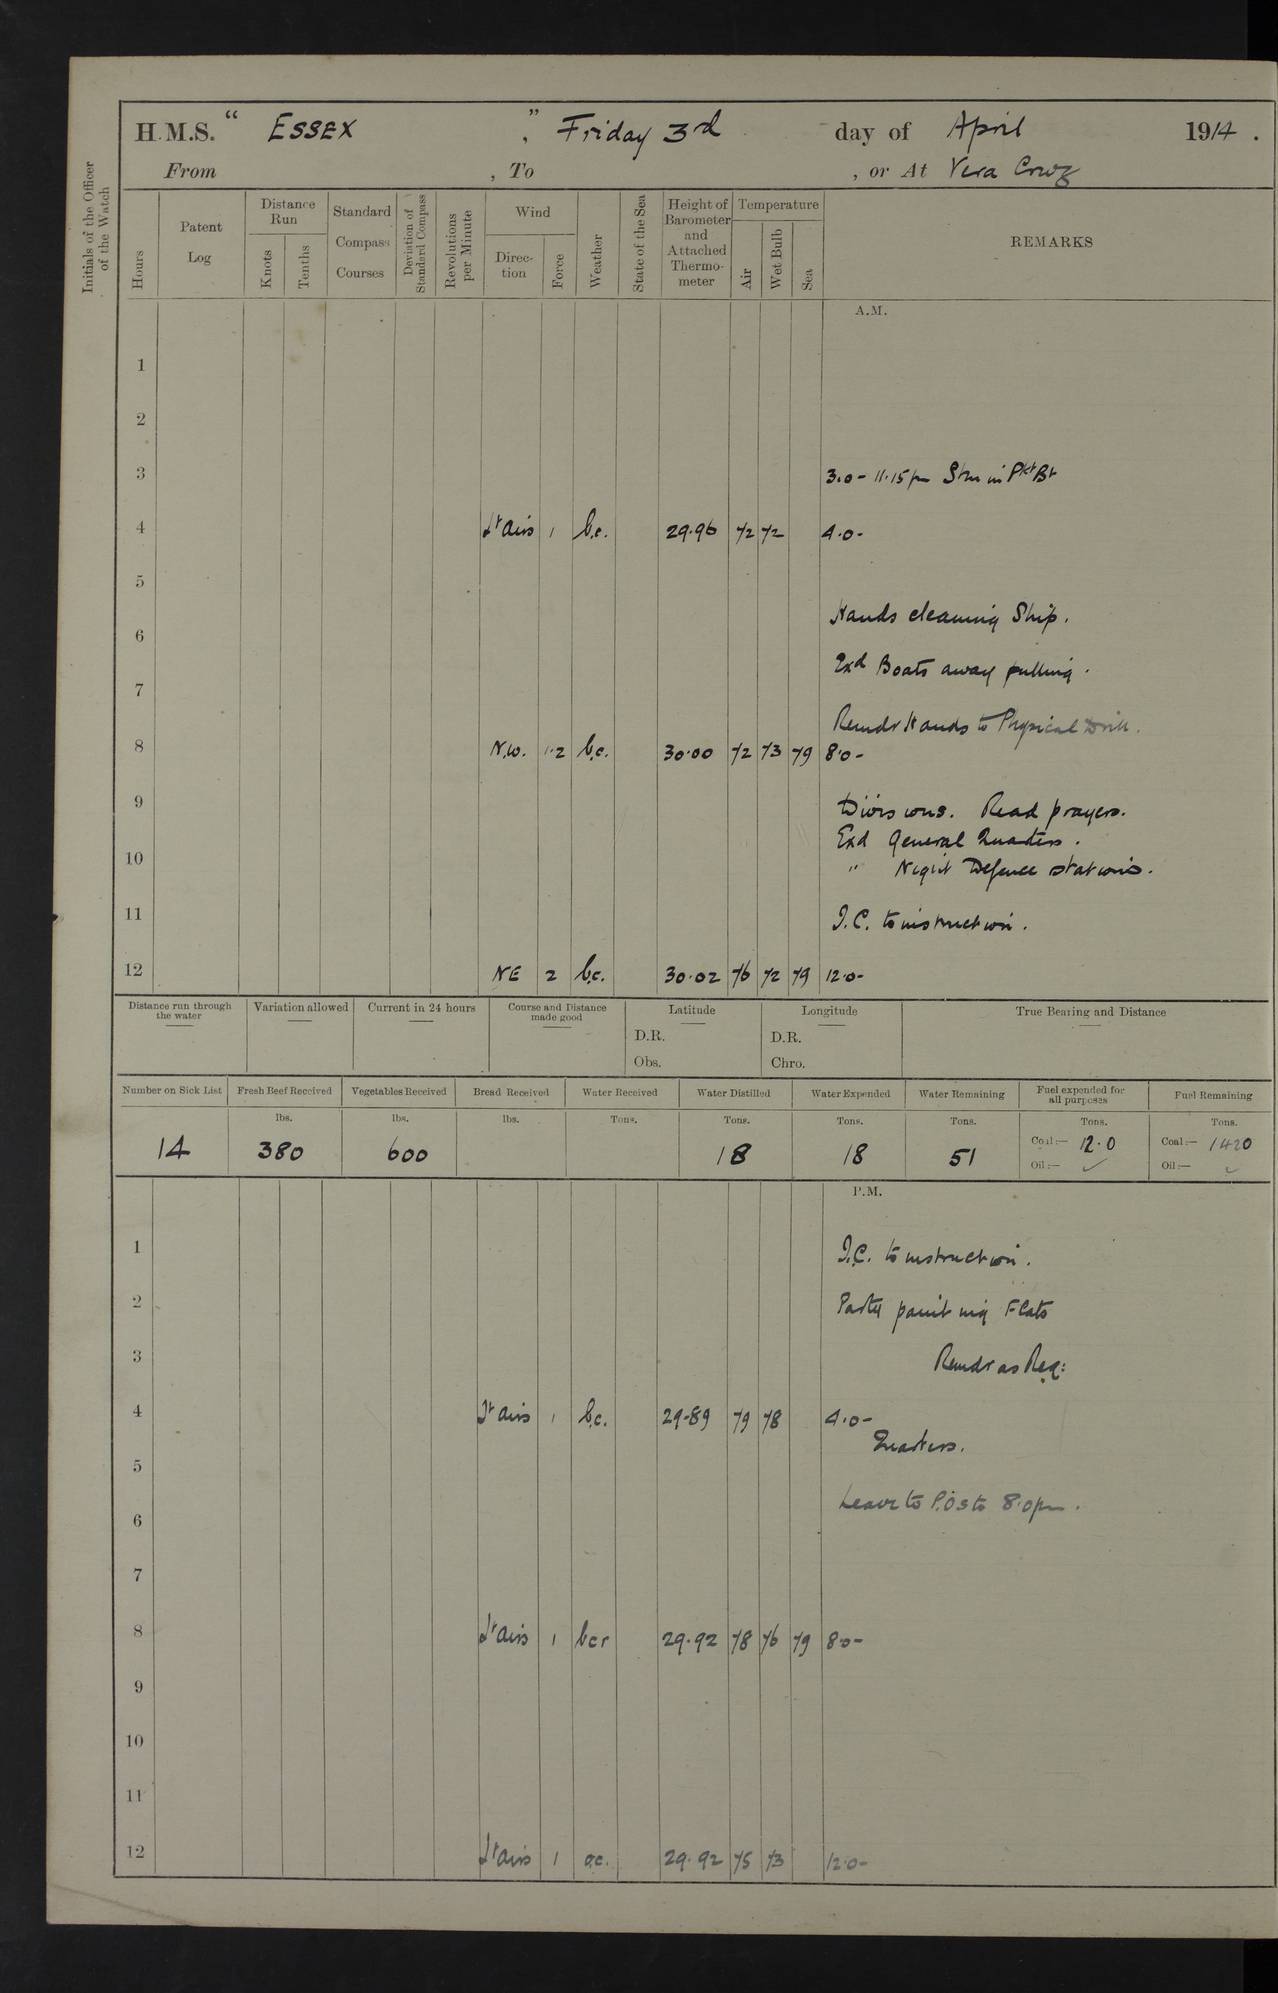 H.M.S. " ESSEX ", Friday 3rd day of April 1914.
From , To , or At Vera Cruz
Initials of the Officer of the Watch
Hours
Patent Log
Distance Run
Knots
Tenths
Standard Compass Courses
Deviation of Standard Compass
Revolutions per Minute
Wind
Direc- tion
Force
Weather
State of the Sea
Height of Barometer and Attached Thermo- meter
Temperature
Air
Wet Bulb
Sea
REMARKS
A.M.
1
2
3 3.0 - 11.15pm Stm in Pkt Bt
4 Lt airs 1 b.c. 29.96 72 72 4.0-
5
Hands cleaning Ship.
6
Exd Boats away pulling.
7
Remdr Hands to Physical Drill.
8 N.W. 1.2 b.c. 30.00 72 73 79 8.0-
9 Divisions. Read prayers.
Exd General Quarters.
10 " Night Defence stations.
11 I.C. to instruction.
12 NE 2 b.c. 30.02 76 72 79 12.0-
Distance run through the water
Variation allowed
Current in 24 hours
Course and Distance made good
Latitude
D.R.
Obs.
Longitude
D.R.
Chro.
True Bearing and Distance
Number on Sick List Fresh Beef Received Vegetables Received Bread Received Water Received Water Distilled Water Expended Water Remaining Fuel expended for all purposes Fuel Remaining
lbs. lbs. lbs. Tons. Tons. Tons. Tons. Tons. Tons.
14 380 600 18 18 51 Coal:— 12.0 Coal:— 1420
Oil:— ✓ Oil:— ✓
P.M.
1 I.C. to instruction.
2 Party painting Flats
3 Remdr as Req:
4 Lt airs 1 b.c. 29.89 79 78 4.0-
Quarters.
5
Leave to P.Os to 8.0pm.
6
7
8 Lt airs 1 bcr 29.92 78 76 79 8.0-
9
10
11
12 Lt airs 1 o.c. 29.92 75 73 12.0-